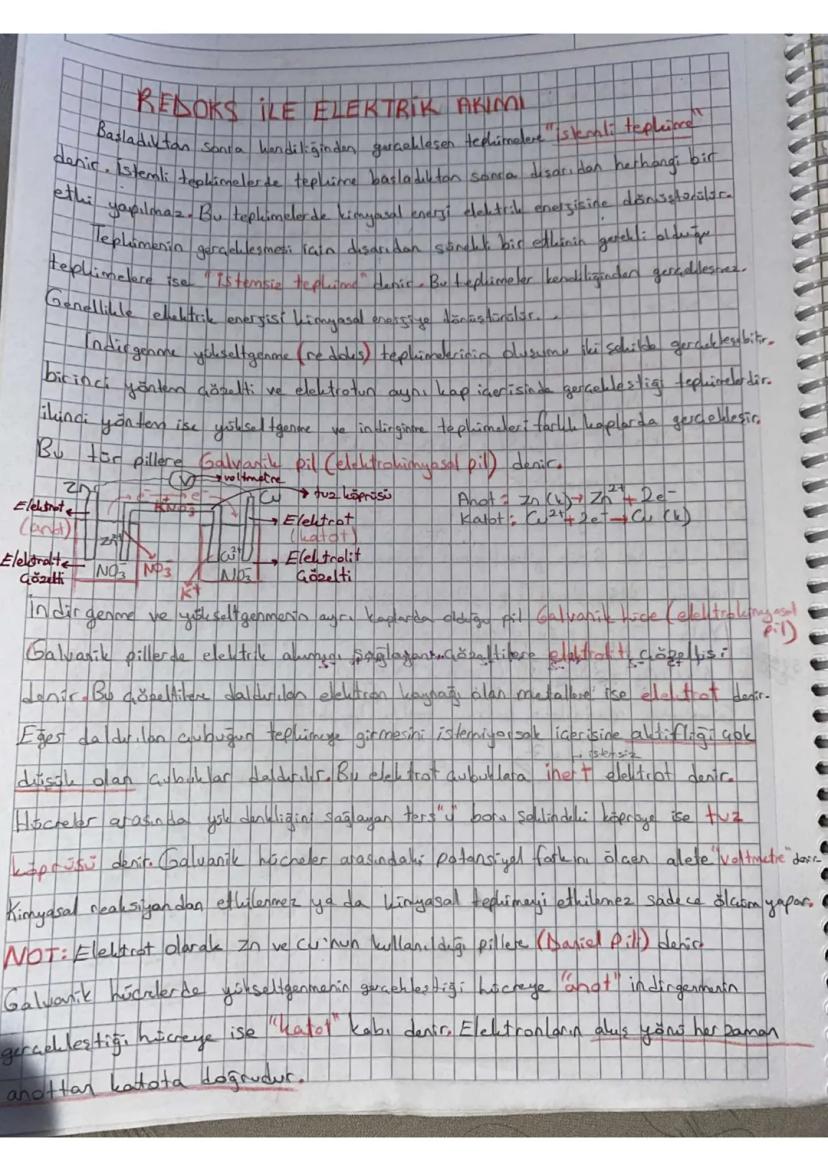 REDOKS İLE ELEKTRİK AKIMI
Başladıktan sonra kendiliğinden gerçekleşen tepkimelere "istemli tepkime"
denir. İstemli tepkimelerde tepkime başladıktan sonra dışarıdan herhangi bir
etki yapılmaz. Bu tepkimelerde kimyasal enerji elektrik enerjisine dönüştürülür.
Tepkimenin gerçekleşmesi için dışarıdan sürekli bir etkinin gerekli olduğu
tepkimelere ise "istemsiz tepkime" denir. Bu tepkimeler kendiliğinden gerçekleşmez.
Genellikle elektrik enerjisi kimyasal enerjiye dönüştürülür.
İndirgenme yükseltgenme (redoks) tepkimelerinin oluşumu iki şekilde gerçekleşebilir.
birinci yöntem çözelti ve elektrotun aynı kap içerisinde gerçekleştiği tepkimelerdir.
ikinci yöntem ise yükseltgenme ve indirginme tepkimeleri farklı kaplarda gerçekleşir.
Bu tür pillere Galvanik pil (elektrokimyasal pil) denir.
V → voltmetre
Zn e⁻ e⁻ Cu → tuz köprüsü
Elektrot (anot) KNO₃ → Elektrot (katot)
Zn²⁺ Cu²⁺ → Elektrolit Çözelti
Elektrolit Çözelti NO₃⁻ NO₃⁻ K⁺ NO₃⁻
Anot: Zn (k) → Zn²⁺ + 2e⁻
Katot: Cu²⁺ + 2e⁻ → Cu (k)
İndirgenme ve yükseltgenmenin ayrı kaplarda olduğu pil Galvanik hücre (elektrokimyasal pil)
Galvanik pillerde elektrik akımını sağlayan çözeltilere elektrolit çözeltisi
denir. Bu çözeltilere daldırılan elektron kaynağı olan metallere ise elektrot denir.
Eğer daldırılan çubuğun tepkimeye girmesini istemiyorsak içerisine aktifliği çok
düşük olan çubuklar daldırılır. Bu elektrot çubuklara inert elektrot denir.
Hücreler arasında yük denkliğini sağlayan ters "u" boru şeklindeki köprüye ise tuz
köprüsü denir. Galvanik hücreler arasındaki potansiyel farkını ölçen alete "voltmetre" denir
Kimyasal reaksiyondan etkilenmez ya da kimyasal tepkimeyi etkilemez sadece ölçüm yapar.
NOT: Elektrot olarak Zn ve Cu'nun kullanıldığı pillere (Daniel Pili) denir
Galvanik hücrelerde yükseltgenmenin gerçekleştiği hücreye "anot" indirgenmenin
gerçekleştiği hücreye ise "katot" kabı denir. Elektronların akış yönü her zaman
anottan katota doğrudur.